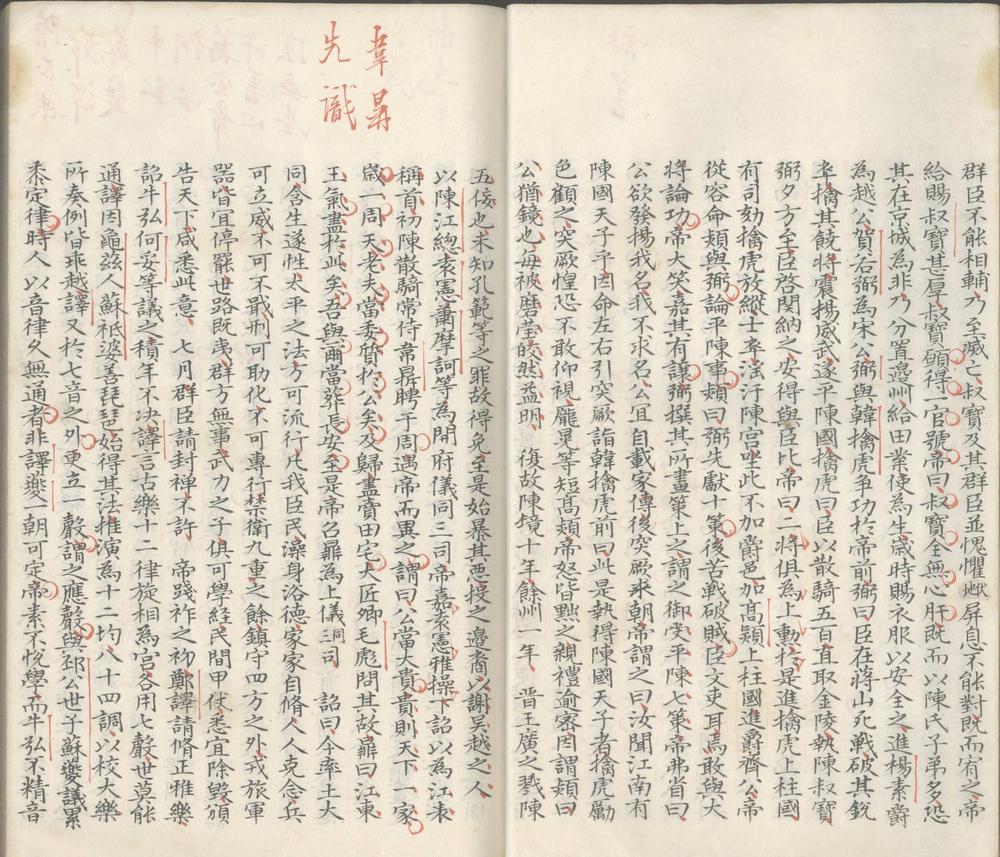 群臣不能相輔乃至滅亡叔寶及其群臣並愧懼伏地屏息不能對既而宥之帝
給賜叔寶甚厚叔寶願得一官號帝曰叔寶全無心肝既而以陳氏子弟多恐
其在京城為非乃分置邊州給田業使為生歲時賜衣服以安全之進楊素爵
為越公賀若弼為宋公弼與韓擒虎爭功於帝前弼曰臣在蔣山死戰破其銳
卒擒其驍將震揚威武遂平陳國擒虎曰臣以散騎五百直取金陵執陳叔寶
弼夕方至臣啓関納之安得與臣比帝曰二將俱為上勳於是進擒虎上柱國
有司劾擒虎放縱士卒滛汙陳宫坐此不加爵邑加高熲上柱國進爵齊公帝
從容命熲與弼論平陳事熲曰弼先獻十策後苦戰破賊臣文吏耳焉敢與大
將論功帝大笑嘉其有讓弼撰其所畫策上之謂之御受平陳七策帝弗省曰
公欲發揚我名我不求名公宜自載家傳後突厥來朝帝謂之曰汝聞江南有
陳國天子乎因命左右引突厥詣韓擒虎前曰此是執得陳國天子者擒虎勵
色顧之突厥惶恐不敢仰視龐晃等短高熲帝怒皆黜之親禮逾密因謂熲曰
公猶鏡也每被磨瑩皎然益明　復故陳境十年餘州一年　晋王廣之戮陳
韋鼎
先識
五佞也未知孔範等之罪故得免至是始暴其惡投之邊裔以謝吳越之人
以陳江總袁憲蕭摩訶等為開府儀同三司帝嘉袁憲雅操下詔以為江表
稱首初陳散騎常侍韋鼎聘于周遇帝而異之謂曰公當大貴貴則天下一家
歲一周天老夫當委質於公矣及歸盡賣田宅大匠卿毛彪問其故鼎曰江東
王氣盡於此矣吾與爾當葬長安至是帝召鼎為上儀同三司　詔曰今率土大
同含生遂性太平之法方可流行凡我臣民澡身浴德家家自脩人人克念兵
可立威不可不戢刑可助化不可專行禁衛九重之餘鎮守四方之外戎旅軍
器皆宜停罷世路既夷群方無事武力之子俱可學経民間甲仗悉宜除毀頒
告天下咸悉此意　七月群臣請封禅不許　帝踐祚之初鄭譯請脩正雅樂
詔牛弘何妥等議之積年不决譯言古樂十二律旋相為宫各用七聲世莫能
通譯因龜兹人蘇祗婆善琵琶始得其法推演為十二均八十四調以校大樂
所奏例皆乖越譯又於七音之外更立一聲謂之應聲與邳公世子蘇夔議累
黍定律時人以音律久無通者非譯夔一朝可定帝素不悅學而牛弘不精音